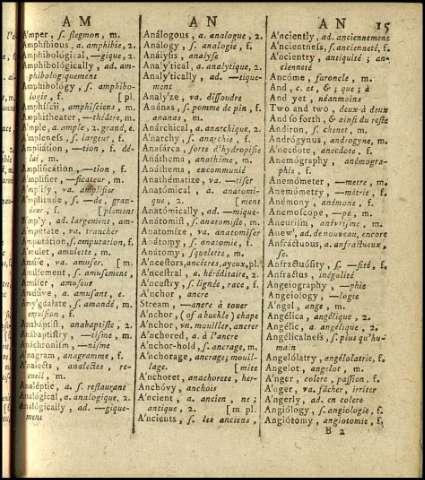 AM
AN
AN
15
A'mper, ſ. flegmon, m.
Amphibious, a. amphibie, 2.
Amphibológical, —gique, 2.
Amphibológically, ad. am-
phibologiquement
Amphibólogy, ſ. amphibo-
logie, f. [pl.
Amphíſcii, amphiſciens, m.
Amphitheater, —théâtre, m.
A'mple, a. ample, 2. grand, e.
A'mpleneſs, ſ. largeur, f.
Ampliátion, —tion, f. dé-
lai, m.
Amplification, —tion, f.
A'mplifier, —ficateur, m.
A'mplify, va. amplifier
A'mplitude, ſ. —de, gran-
deur, f. [plement
A'mply, ad. largement, am-
A'mputate, va. trancher
Amputátion, ſ. amputation, f.
A'mulet, amulette, m.
Amúſe, va. amuſer. [m.
Amúſement, ſ. amuſement,
Amúſer, amuſeur
Amúſive, a. amuſant, e.
Amy'gdalate, ſ. amandé, m.
emulſion, f.
Anabaptiſt, anabaptiſte, 2.
Anabaptiſtry, —tiſme, m.
Anáchroniſm, —niſme, m.
A'nagram, anagramme, f.
A'nalects, analectes, re-
cueil, m.
Análéptic, a. ſ. reſtaurant
Analógical, a. analogique, 2.
Analógically, ad. —gique-
ment
Análogous, a. analogue, 2.
Análogy, ſ. analogie, f.
Análylis, analyſe
Analy'tical, a. analytique, 2.
Analy'tically, ad. —tique-
ment
Analy'ze, va. diſſoudre
Anánas, ſ. pomme de pin, f.
ananas, m.
Anárchical, a. anarchique, 2.
A'narchy, ſ. anarchie, f.
Anaſárca, ſorte d'hydropiſie
Anáthema, anathême, m.
Anáthema, excommunié
Anáthematize, va. —tiſer
Anatómical, a. anatomi-
que, 2. [ment
Anatómically, ad. —mique-
Anátomiſt, ſ. anatomiſte, m.
Anátomize, va. anatomiſer
Anátomy, ſ. anatomie, f.
Anátomy, ſquelette, m.
A'nceſtors, ancêtres, ayeux, pl.
A'nceſtral, a. héréditaire, 2.
A'nceſtry, ſ. lignée, race, f.
A'nchor, ancre
Stream, —ancre à touer
A'nchor, (of a buckle) chape
A'nchor, vn. mouiller, ancrer
A'nchored, a. à l'ancre
A'nchor-hold, ſ. ancrage, m.
A'nchorage, ancrage, mouil-
lage. [mite
A'nchoret, anachorete, her-
Anchóvy, anchois
A'ncient, a. ancien, ne;
antique, 2. [m. pl.
A'ncients, ſ. les anciens,
A'nciently, ad. anciennement
A'ncientneſs, ſ. ancienneté, f.
A'ncientry, antiquité; an-
cienneté
Ancóme, furoncle, m.
And, c. et, &; que; à
And yet, néanmoins
Two and two, deux à deux
And ſo forth, & ainſi du reſte
Andiron, ſ. chenet, m.
Andrógynus, androgyne, m.
A'necdote, anecdote, f.
Anemógraphy, anémogra-
phie, f.
Anemómeter, —metre, m.
Anemómetry, —métrie, f.
Anémony, anémone, f.
Anemoſcope, —pe, m.
Aneuriſm, anévriſme, m.
Anew', ad. de nouveau, encore
Anfráctuous, a. anfractueux,
ſe.
Anfractuóſity, ſ. —ſité, f.
Anfractus, inégalité
Angeiography, —phie
Angeiology, —logie
A'ngel, ange, m.
Angélica, angélique, 2.
Angélic, a. angélique, 2.
Angélicalneſs, ſ. plus qu'hu-
main
Angelólatry, angélolatrie, f.
Angelot, angelot, m.
A'nger, colere, paſſion, f.
A'nger, va. fâcher, irriter
A'ngerly, ad. en colere
Angiólogy, ſ. angiologie, f.
Angiótomy, angiotomie, f.
B 2